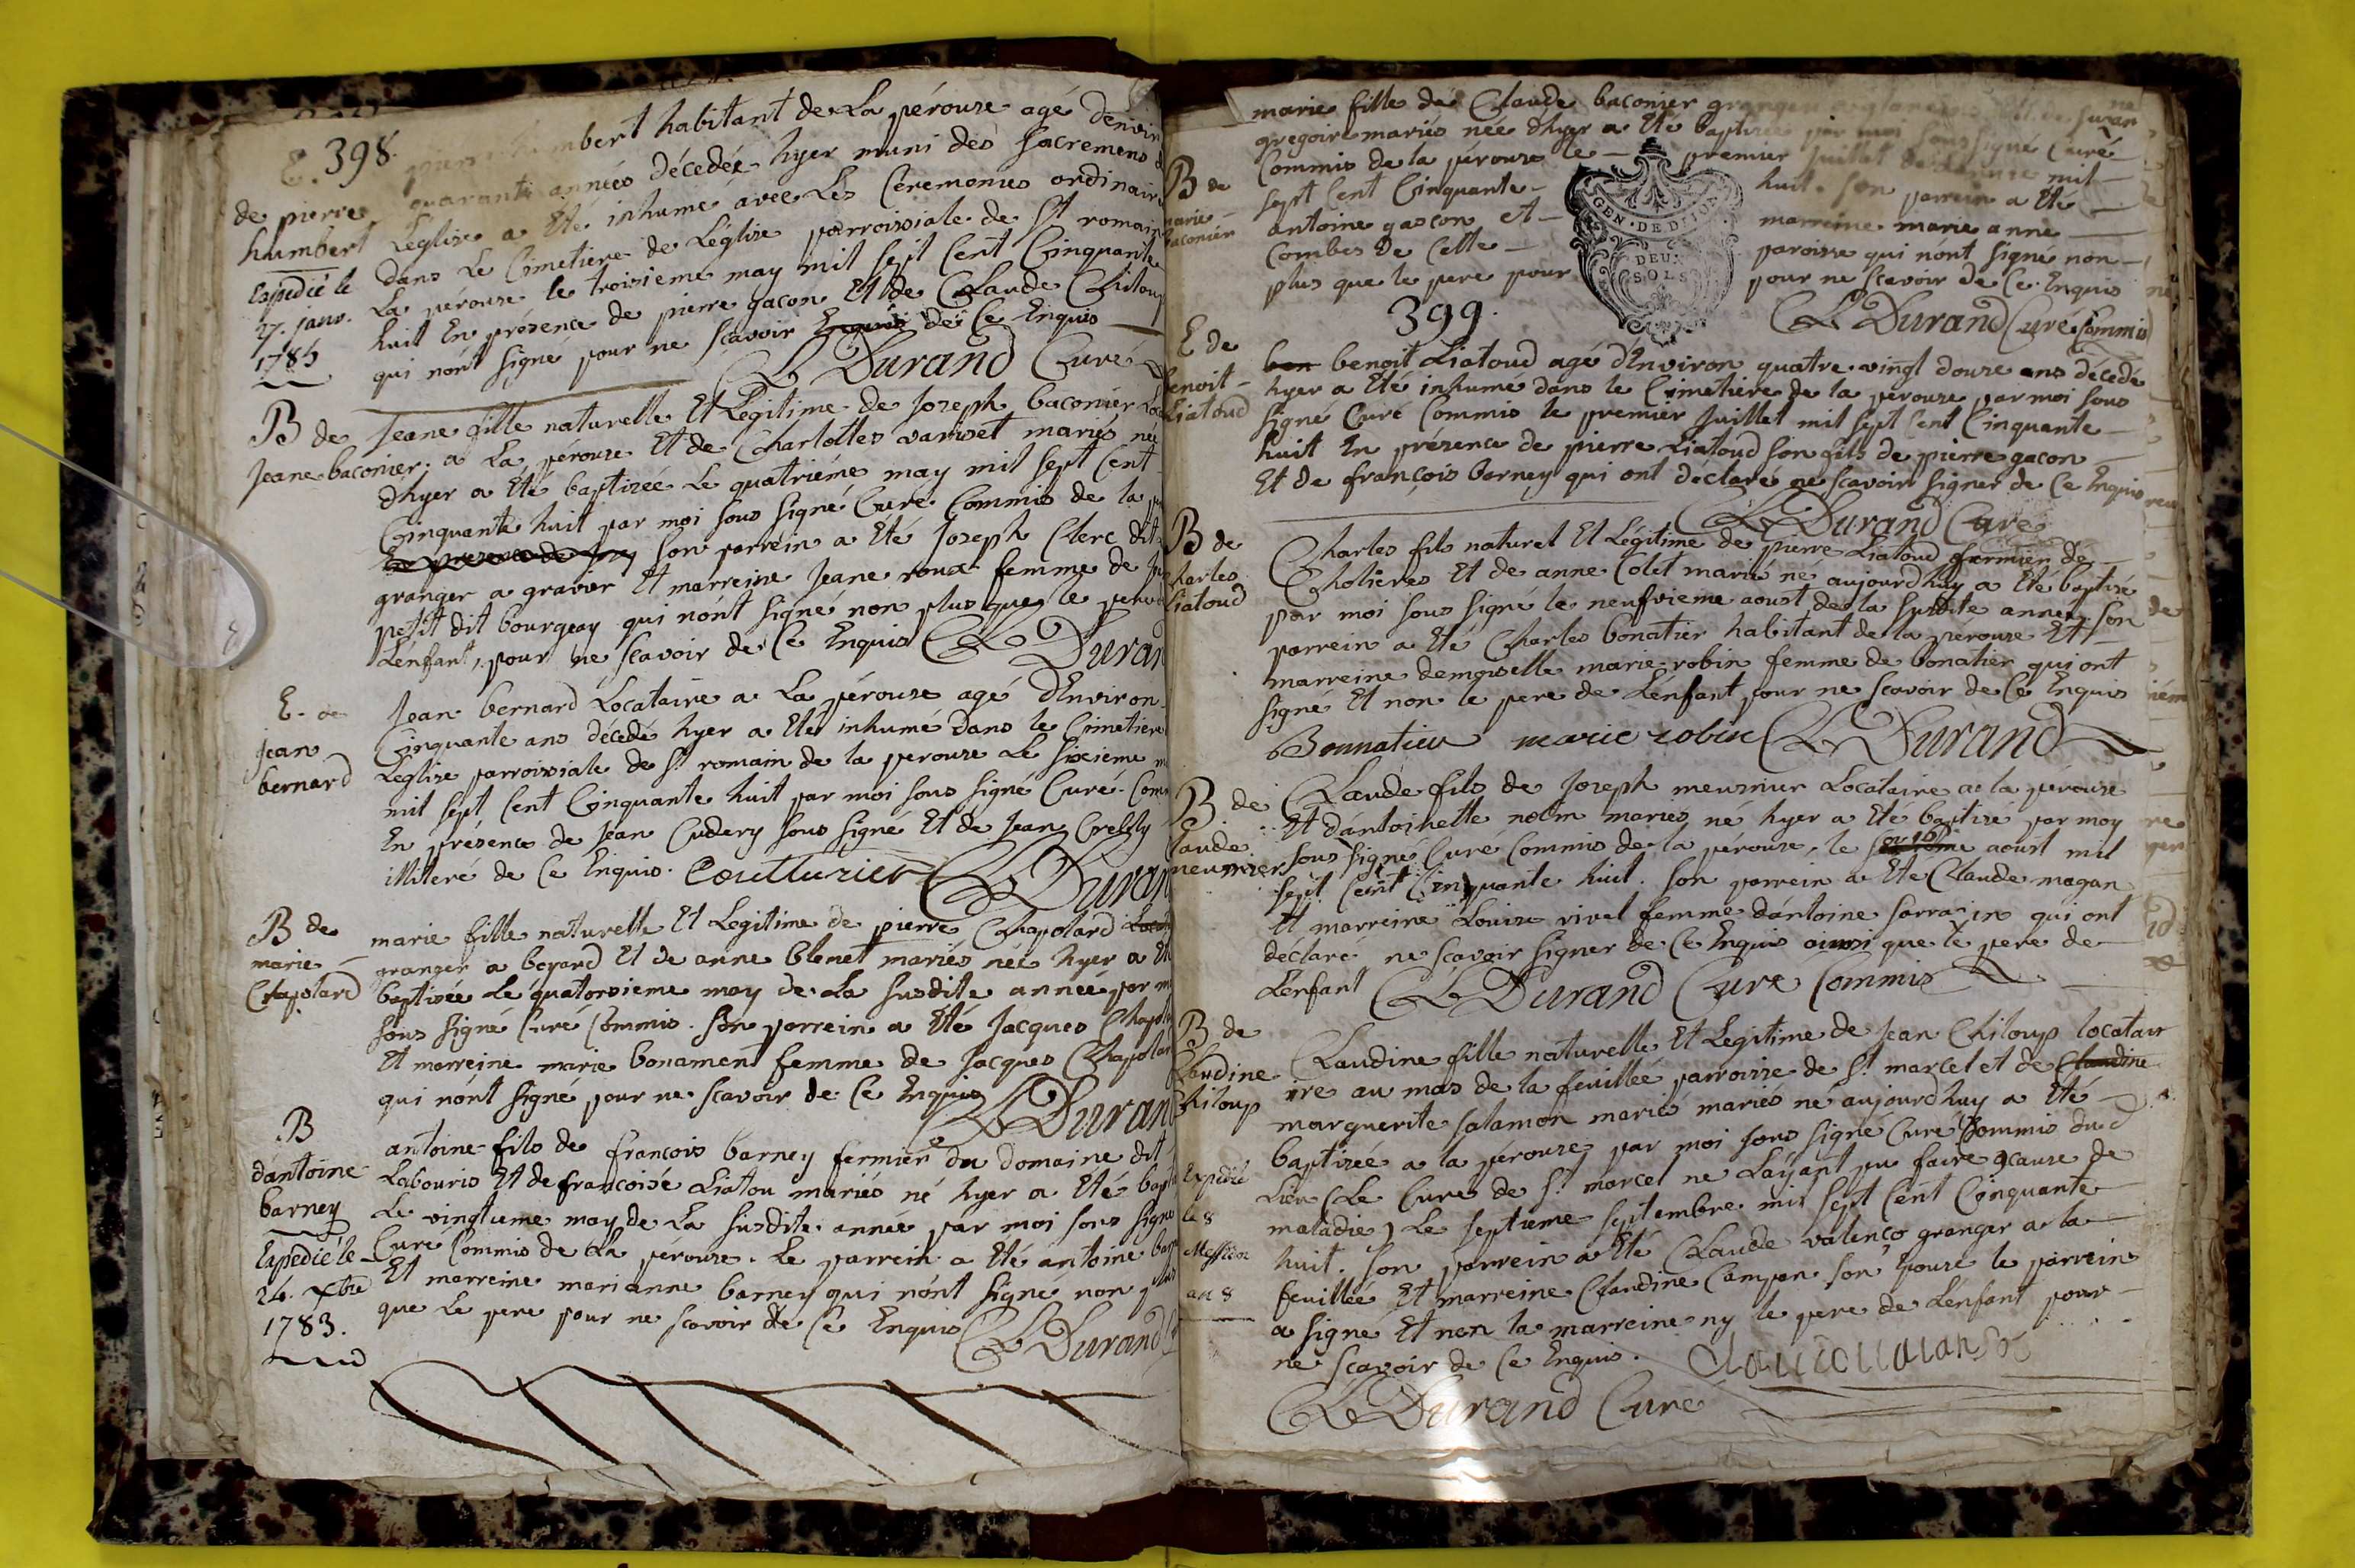 398.
E.
de pierre
humbert
Expedié le
27. janv.
1785
humbert habitant de La pérouse agé denvir
quarante années décedée hyer muni des sacremens d
Léglise a Eté inhumé avec Les Ceremonies ordinair
dans Le Cimetiere de Léglise parroissiale de St romain
La pérouse le troisieme may mil sept Cent Cinquante
huit En présence de pierre gacon Et de Claude Chiloup
qui nónt signé pour ne scavoir Enquis de Ce Enquis
Durand Curé
B de
Jeane baconier.
Jeane fille naturelle Et Légitime de Joseph baconier Loc
a La pérouse Et de Charlottes variset mariés née
dhyer a Eté baptizée Le quatriéme may mil sept Cent
Cinquante huit par moi sous signé Curé Commis de la p
En presence de Jos son parrein a Eté Joseph Clerc dit
granger a gravier Et marreine Jeane roux femme de
petit dit bourgeay qui nónt signé non plus que le pere d
Lénfant, pour ne scavoir de Ce Enquis
Duran
E. de
jean
bernard
Jean bernard Locataire a La pérouse agé dEnviron
Cinquante ans décedé hyer a Eté inhumé Dans le Cimetiere
Léglise parroissiale de St romain de la perouse Le sixieme m
mil sept Cent Cinquante huit par moi sous signé Curé Com
En présence de Jean Cudery sous signé Et de Jean
illiteré de Ce Enquis. Coutturier
Duran
B de
marie
Chapolard
marie fille naturelle Et Legitime de pierre Chapolard Locat
granger a boyard Et de anne blenet mariés née hyer a Et
baptisée Le quatorsieme may de La susdite année par m
sous signé Curé Commis. son parrein a Eté Jacques Chapola
Et marreine marie bonament femme de Jacques Chapolar
qui nónt signé pour ne scavoir de Ce Enquis
Duran
B
dantoine
barney
Expedié le
24. xbre
1783.
antoine fils de francois barney fermier du domaine dit
Labouris Et de francoise Liatou mariés né hyer a Eté bapt
Le vingtieme may de La susdite année par moi sous signé
Curé Commis de La pérouse. Le parrein a Eté antoine bar
Et marreine marianne barney qui nónt signé non plus
que Le pere pour ne scavoir de Ce Enquis
Durand
B de
marie
baconier
marie fille de Claude baconier granger
gregoire mariés née dhyer a Eté baptizée par moi sous signé Curé
Commis de la pérouse le premier Juillet mil
sept Cent Cinquante huit. son parrein a Eté
antoine gascon et marreine marie anne
Combes de Cette paroisse qui nónt signé non
plus que le pere pour pour ne scavoir de Ce Enquis
GEN. DE DIJON
DEUX
SOLS
Durand Curé Commis
399.
E de
benoit
Liatoud
ben benoit Liatoud agé dEnviron quatre vingt douze ans décedé
hyer a Eté inhumé dans le Cimetiere de la pérouse par moi sous
signé Curé Commis le premier Juillet mil sept Cent Cinquante
huit En présence de pierre Liatoud son fils de pierre gacon
Et de françois barney qui ont déclaré ne scavoir signer de Ce Enquis
Durand Curé
B de
Charles
Liatoud
Charles fils naturel Et Légitime de pierre Liatoud fermier de
Cholieres Et de anne Colet marié né aujourdhuy a Eté baptisé
par moi sous signé le neufvieme aoust de la susdite année son
parrein a Eté Charles bonatier habitant de la pérouse Et
marreine demoiselle marie robin femme de bonatier qui ont
signé Et non le pere de Lénfant pour ne scavoir de Ce Enquis
Bonnatier marie robin Durand
B. de
Claude
meusnier
Claude fils de Joseph meusnier Locataire a la pérouse
Et dantoinette nolin mariés né hyer a Eté baptisé par moy
sous signé Curé Commis de la pérouse, le aoust mil
sept Cent Cinquante huit. son parrein a Eté Claude magan
Et marreine Louise vivet femme dántoine sarrasin qui ont
déclaré ne scavoir signer de Ce Enquis ainsi que le pere de
Lénfant Durand Curé Commis
B de
Claudine
Chiloup
Expedié
le 8
Messidor
an 8
Claudine fille naturelle Et Legitime de Jean Chiloup locatair
ire au mas de la feuillée parroisse de St marcel et de Claudine
marguerite salamon mariés mariés né aujourdhuy a Eté
baptizée a la pérouse par moi sous signé Curé Commis dud
Lieu (Le Curé de St marcel ne Láyant pu faire acause de
maladie) Le septieme septembre mil sept Cent Cinquante
huit. son parrein a Eté Claude valenço granger a la
feuillée Et marreine Claudine Campan son Epouse le parrein
a signé Et non la marreine ny le pere de Lénfant pour
ne scavoir de Ce Enquis.
Durand Curé